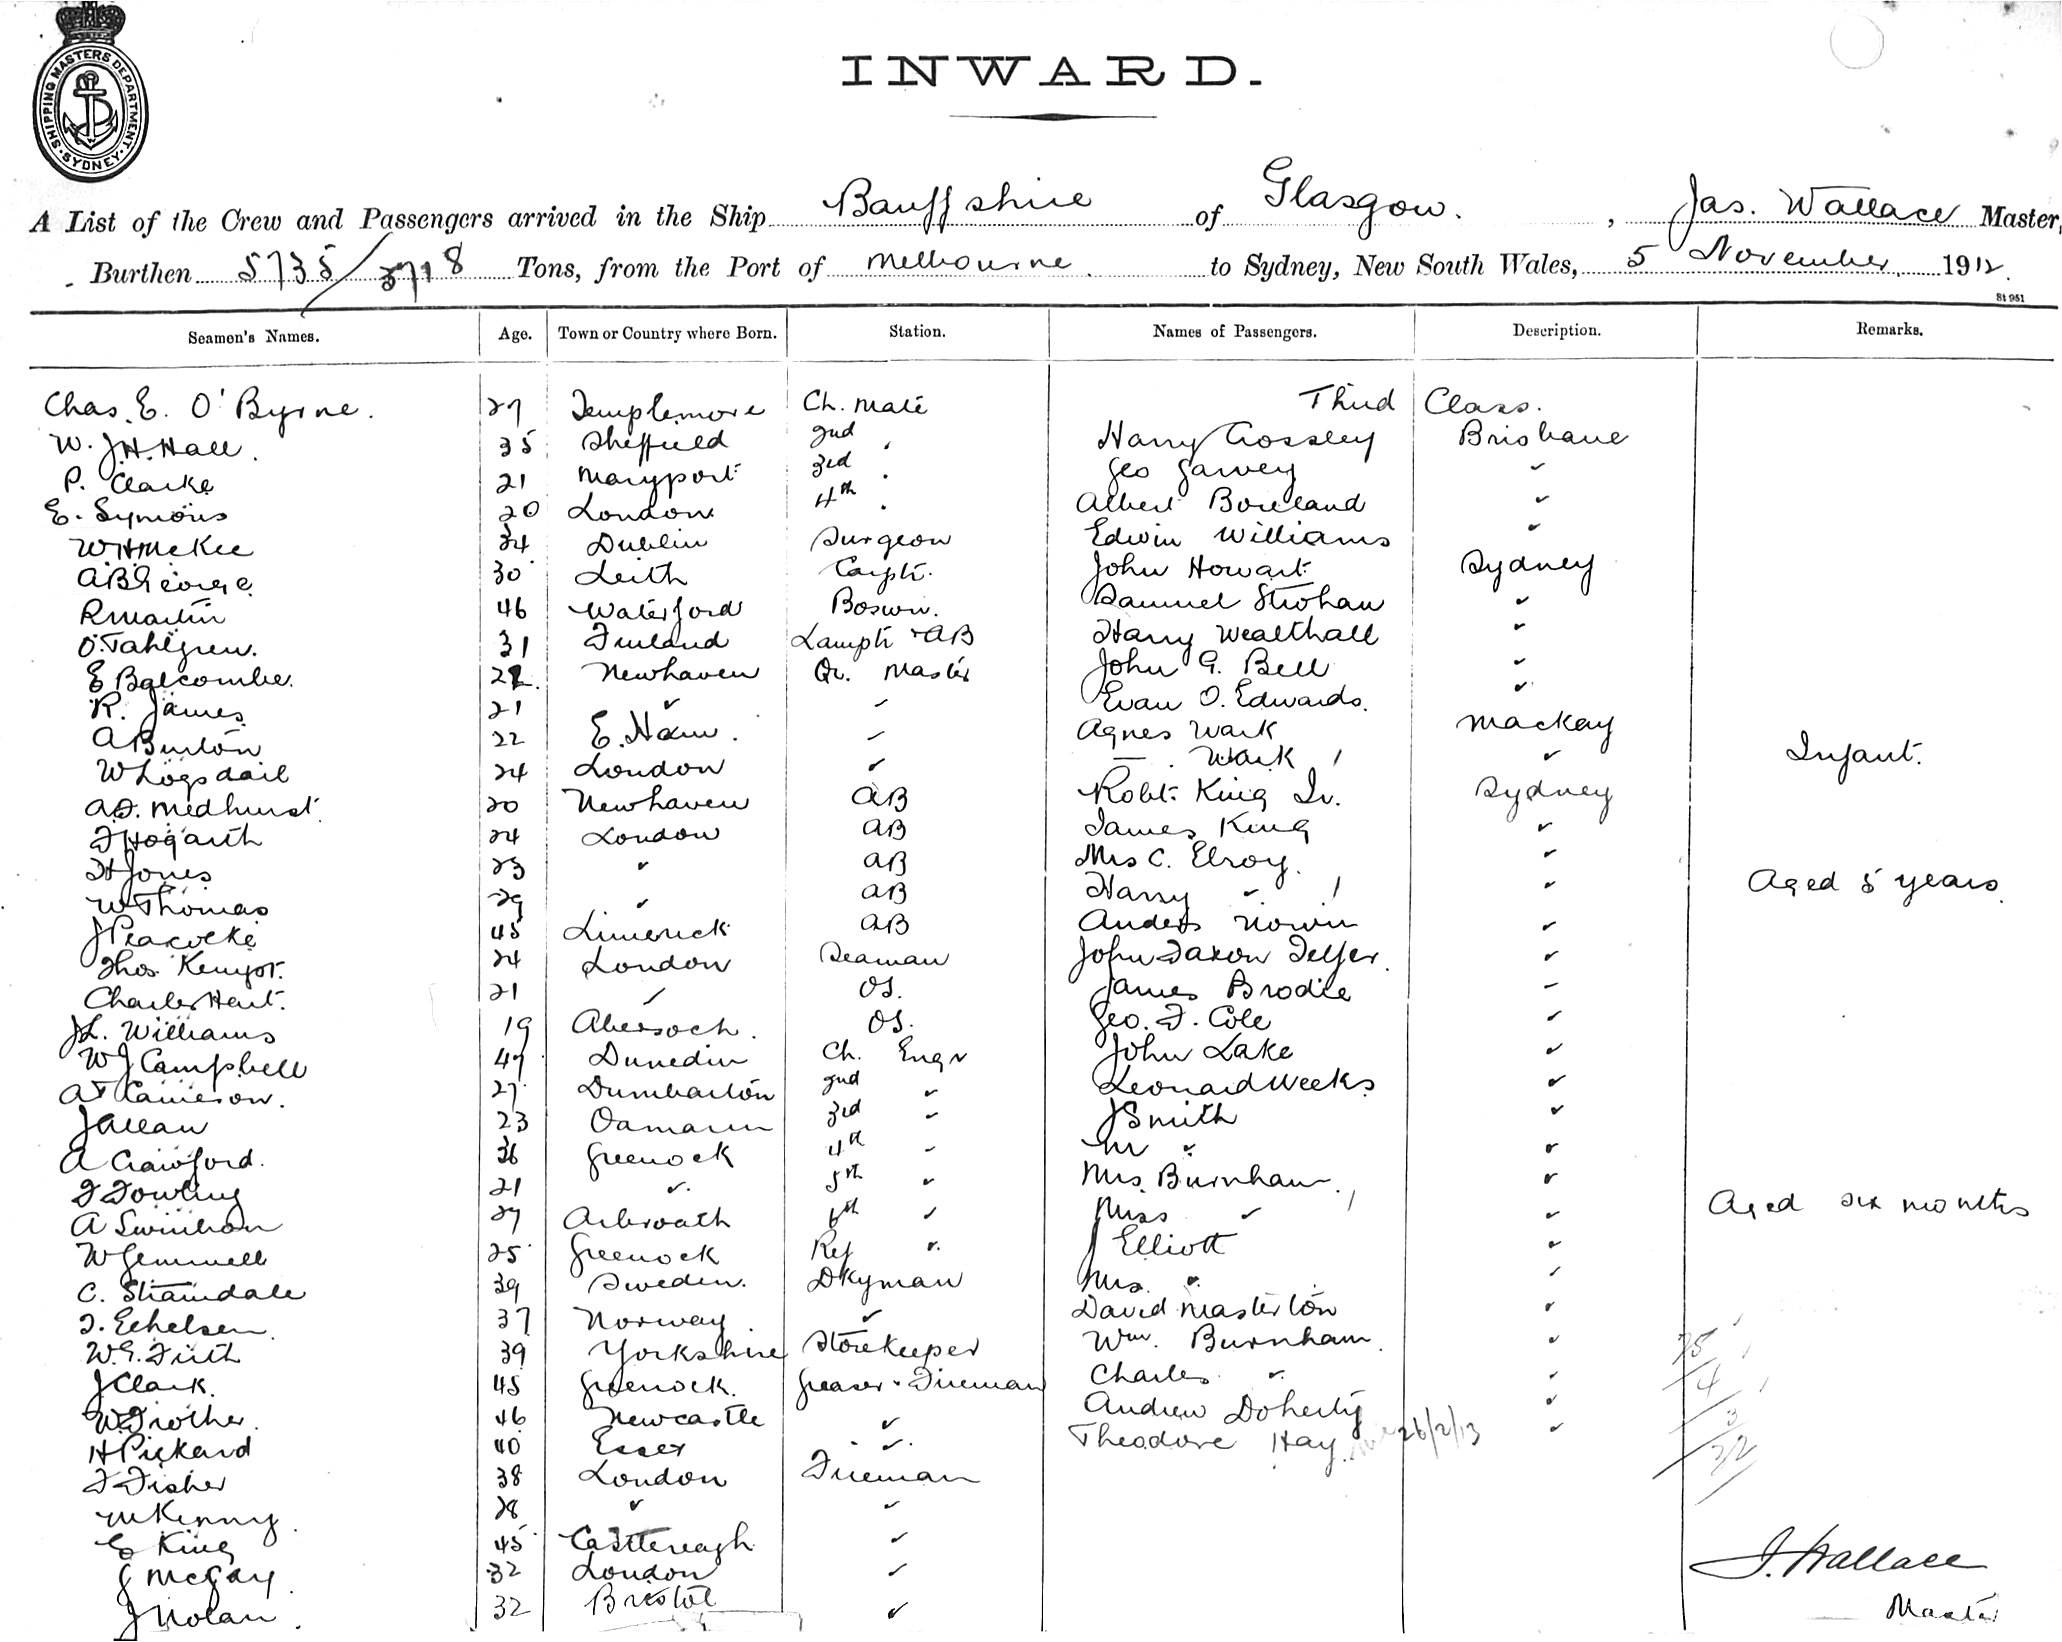 SHIPPING MASTERS DEPARTMENT. SYDNEY
INWARD.
A List of the Crew and Passengers arrived in the Ship Banffshire of Glasgow. , Jas. Wallace Master,
Burthen 5735/3718 Tons, from the Port of Melbourne. to Sydney, New South Wales, 5 November. 1912.
St 951
Seamen's Names. Age. Town or Country where Born. Station. Names of Passengers. Description. Remarks.
Chas. E. O'Byrne. 27 Templemore Ch. Mate Third Class.
W. J.H. Hall. 35 Sheffield 2nd Harry Crossley Brisbane
P. Clarke 21 Maryport 3rd Geo Garvey ✓
E. Symons 20 London 4th Albert Boreland ✓
W H McKee 24 Dublin Surgeon Edwin Williams ✓
A B George 30 Leith Carptr. John Howart Sydney
R Martin 46 Waterford Boswn. Samuel Strohan ✓
O. Tahlgren. 31 Finland Lamptr + AB Harry Wealthall ✓
E Balcombe. 22 Newhaven Qr. Master John G. Bell ✓
R. James 21 ✓ ✓ Evan O. Edwards. ✓
A Burton 22 E. Ham. ✓ Agnes Wark Mackay
W Logsdail 24 London ✓ — Wark 1 ✓ Infant.
A.J. Medhurst 20 Newhaven AB Robt. King Jr. Sydney
J Hogarth 24 London AB James King ✓
H Jones 23 ✓ AB Mrs C. Elroy. ✓
W Thomas 29 ✓ AB Harry ✓ 1 ✓ Aged 5 years
J Peacocke 45 Limerick AB Anders ✓
Thos Kempt. 24 London Seaman John Telfer. ✓
Charles Hart. 21 ✓ OS. James Brodie ✓
J L. Williams 19 Abersoch. OS. Geo. F. Cole ✓
W J Campbell 47 Dunedin Ch. Engr John Lake ✓
A T Cameron. 27 Dumbarton 2nd ✓ Leonard Weeks ✓
J Allan 23 Oamaru 3rd ✓ J Smith ✓
A Crawford. 36 Greenock 4th ✓ M ✓ ✓
J Dowling 21 ✓ 5th ✓ Mrs. Burnham. ✓
A Swinton 27 Arbroath 6th ✓ Miss ✓ 1 ✓ Aged six months
W Gemmell 25 Greenock Ref ✓ J Elliott ✓
C. Strandale 39 Sweden. Dkyman Mrs. ✓ ✓
J. Echelsen 37 Norway. ✓ David Masterton ✓
W. E. Firth 39 Yorkshire Storekeeper Wm. Burnham. ✓
J Clark. 45 Greenock. Greaser + Fireman Charles ✓ ✓
W. Trother. 46 Newcastle ✓ Andrew Doherty ✓
H Pickard 40 Essex ✓ Theodore Hay 26/2/13 ✓
J Fisher 38 London Fireman
M Kenny. 28 ✓ ✓
E King 45 Castlereagh ✓
J McGay. 32 London ✓
J Nolan. 32 Bristol ✓
J. Wallace
Master